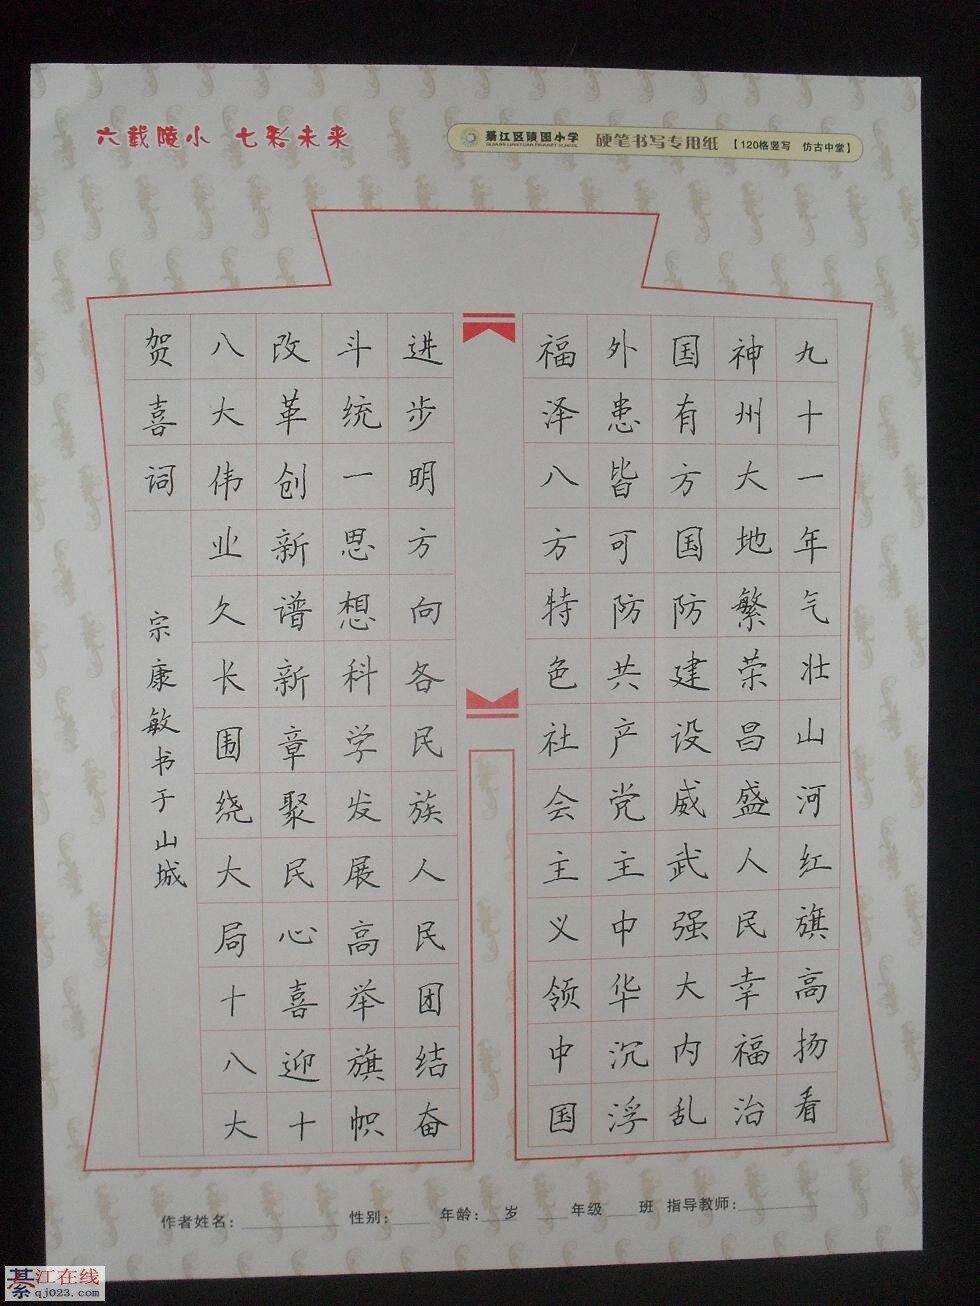 六载陵小 七彩未来
綦江区陵园小学 硬笔书写专用纸 【120格竖写 仿古中堂】
九十一年气壮山河红旗高扬看
神州大地繁荣昌盛人民幸福治
国有方国防建设威武强大内乱
外患皆可防共产党主中华沉浮
福泽八方特色社会主义领中国
进步明方向各民族人民团结奋
斗统一思想科学发展高举旗帜
改革创新谱新章聚民心喜迎十
八大伟业久长围绕大局十八大
贺喜词
宗康敏书于山城
作者姓名： 性别： 年龄： 岁 年级 班 指导教师：
綦江在线
qj023.com